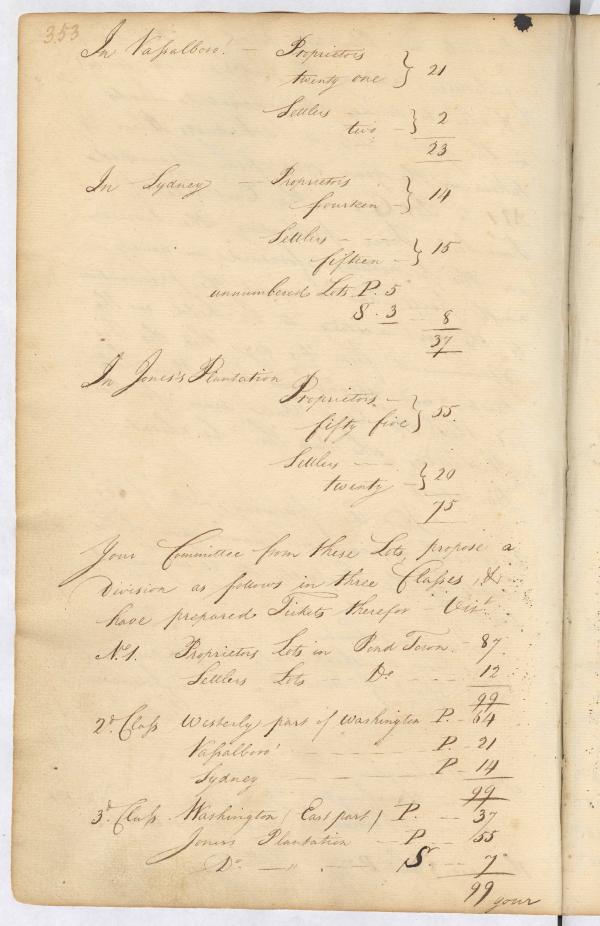 353
In Vassalboro' - Proprietors
twenty one } 21
Settlers
two - } 2
23
In Sydney - Proprietors
fourteen - } 14
Settlers - - -
fifteen - } 15
unnumbered Lots P. 5
S. 3 8
37
In Jones's Plantation
Proprietors -
fifty five } 55.
Settlers - - -
twenty - } 20
75
Your Committee from these Lots, propose a
Division as follows in three Classes, &
have prepared Tickets therefor Vizt.
No. 1. Proprietors Lots in Pond Town - 87
Settlers Lots - - Do - - - 12
99
2d. Class Westerly part of Washington P. - 64
Vassalboro' - - - - P. - 21
Sydney - - - - P - 14
99
3d. Class Washington (East part) P. - - 37
Jones's Plantation - - P - - 55
Do - " - - Sr - - 7
99
your